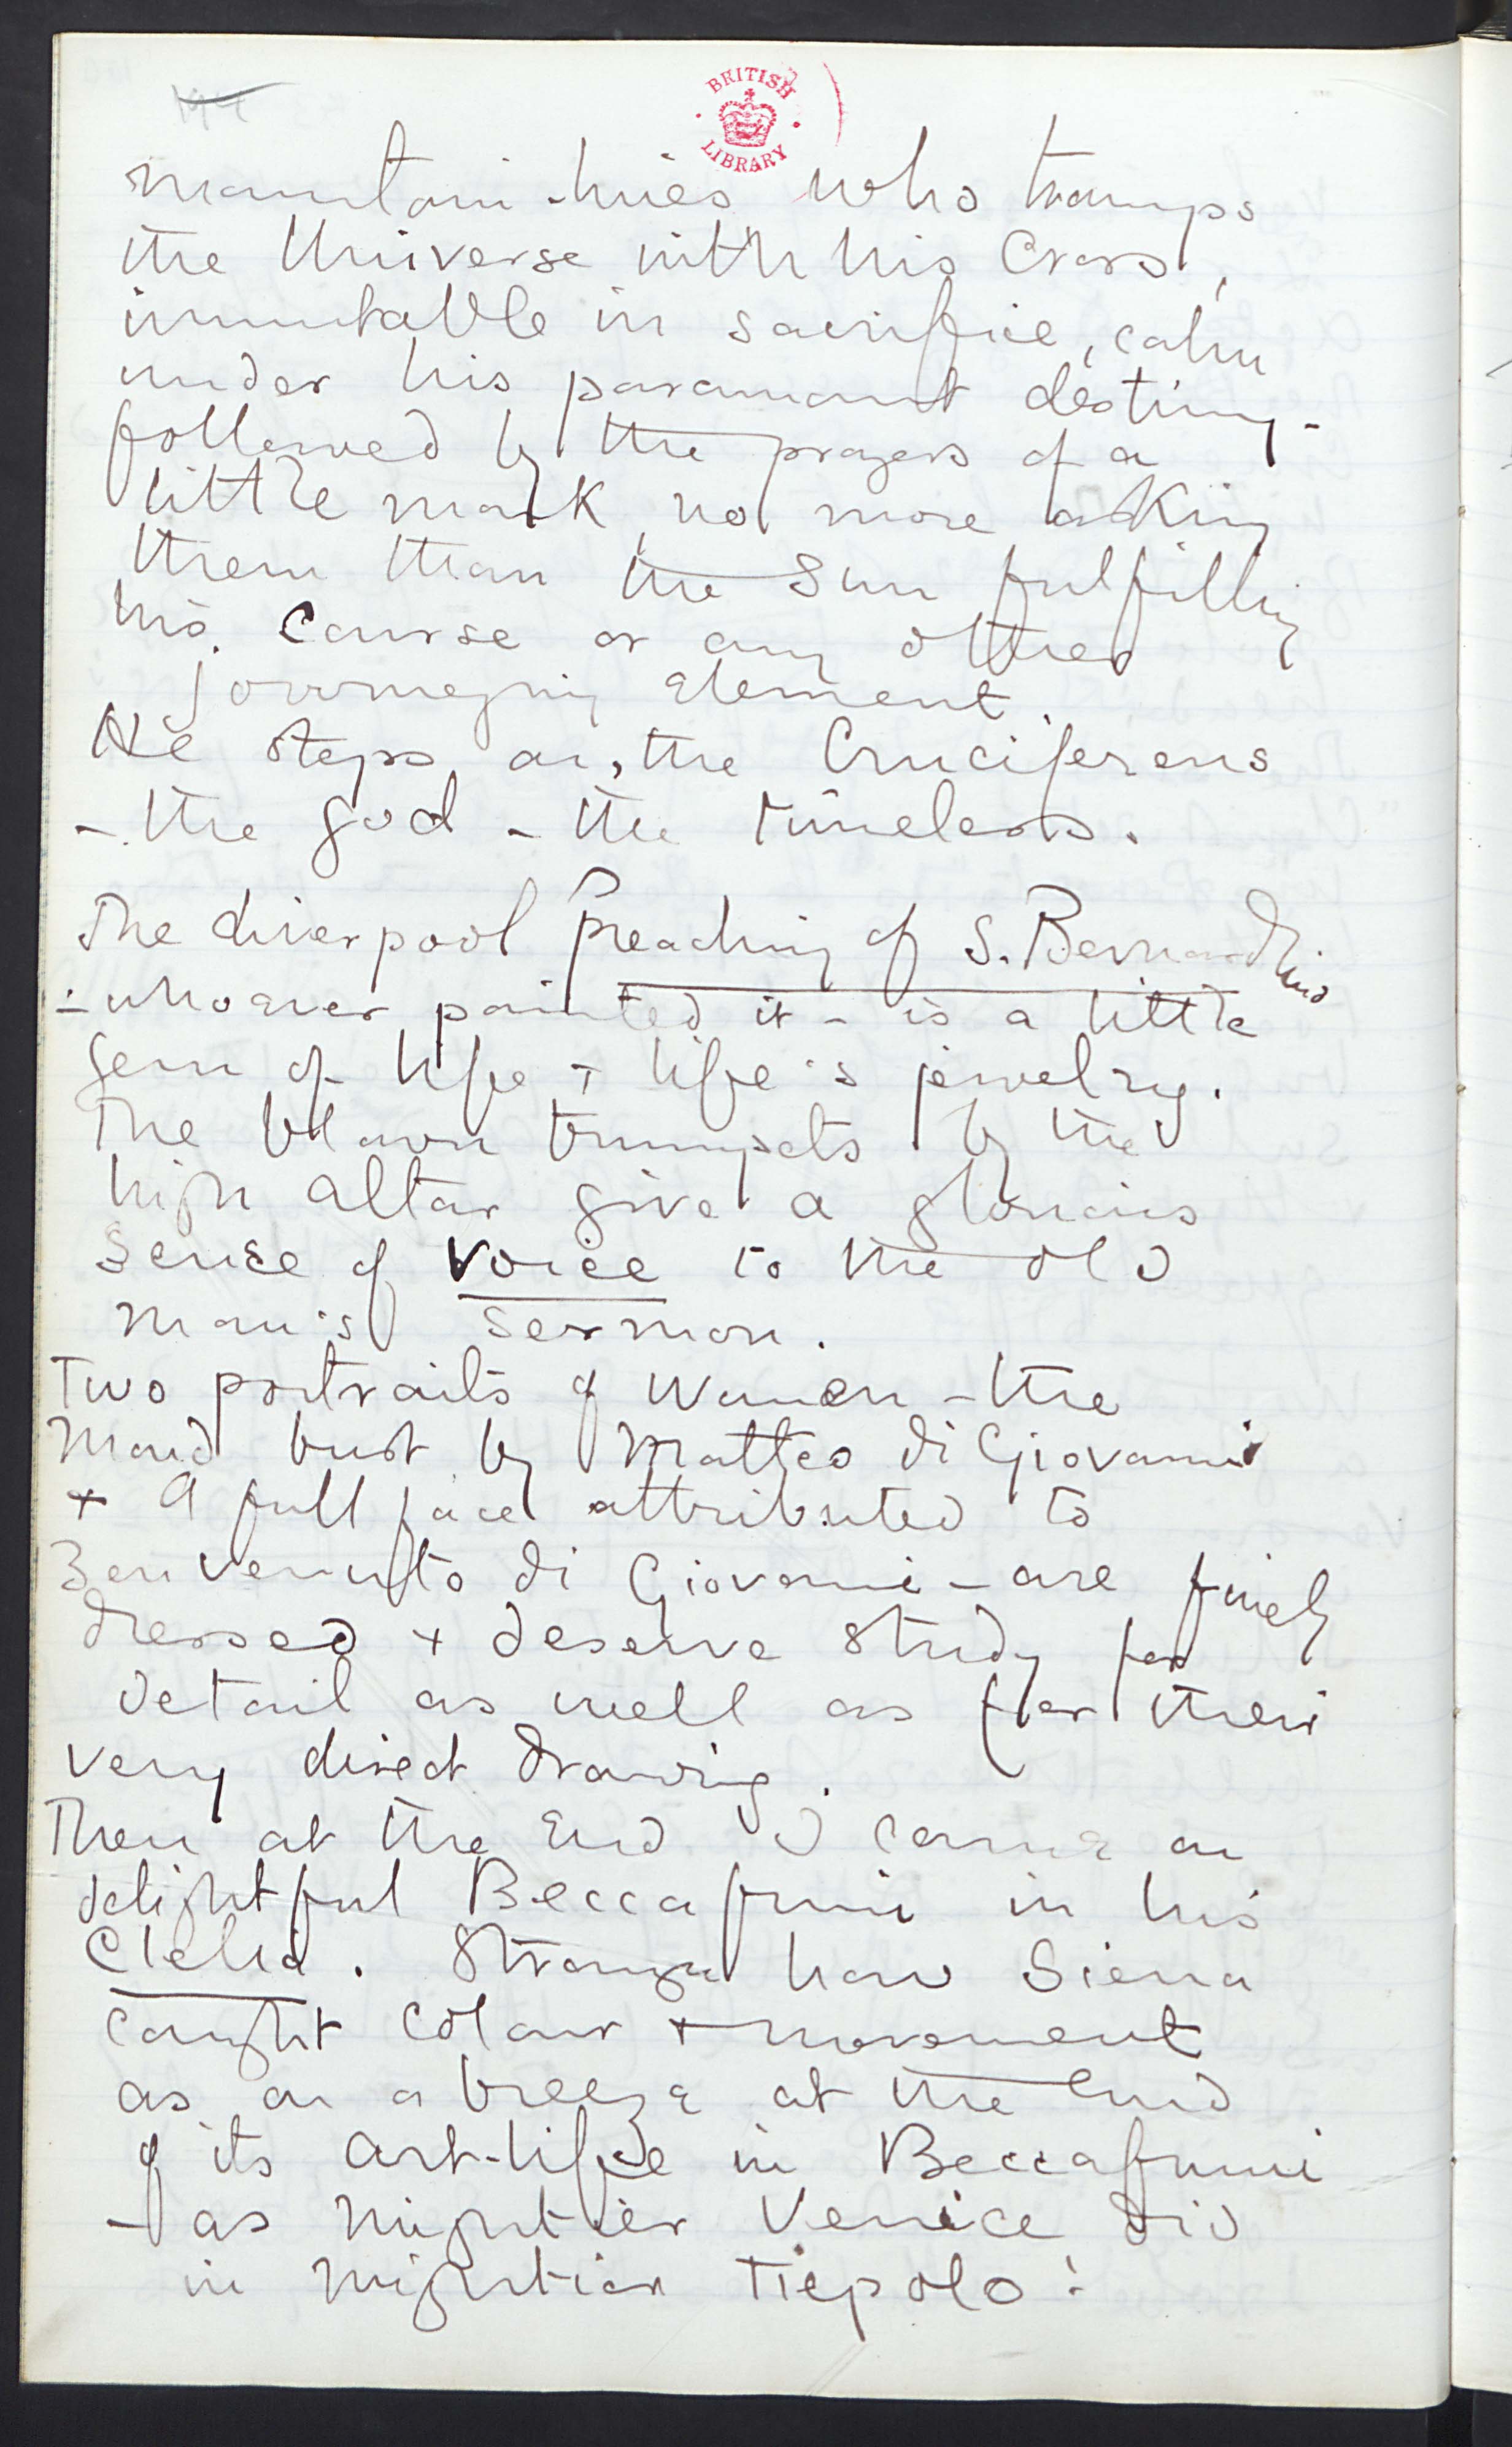 BRITISH
LIBRARY
mountain-lines who tramps
the Universe with his Cross,
immutable in sacrifice, calm
under his paramount destiny -
followed by the prayers of a
little monk no more asking
them than the Sun fulfilling
his course or any other
journeying element.
He steps on, the Cruciferens
- the god - the timeless.
The Liverpool Preaching of S. Bernardino
- whoever painted it - is a little
gem of life + life's jewelry.
The blown trumpets by the
high altar give a glorious
sense of voice to the old
man's sermon.
Two portraits of Women - the
Maud bust by Matteo di Giovanni
+ A full face attributed to
Benvenuto di Giovanni - are finely
dressed + deserve study for
detail as well as for their
very direct drawing.
Then at the End I came on
delightful Beccafumi in his
Clelia. Strange how Siena
caught colour + movement
as on a breeze at the end
of its Art-life in Beccafumi
- as mightier Venice did
in mightier Tiepolo!